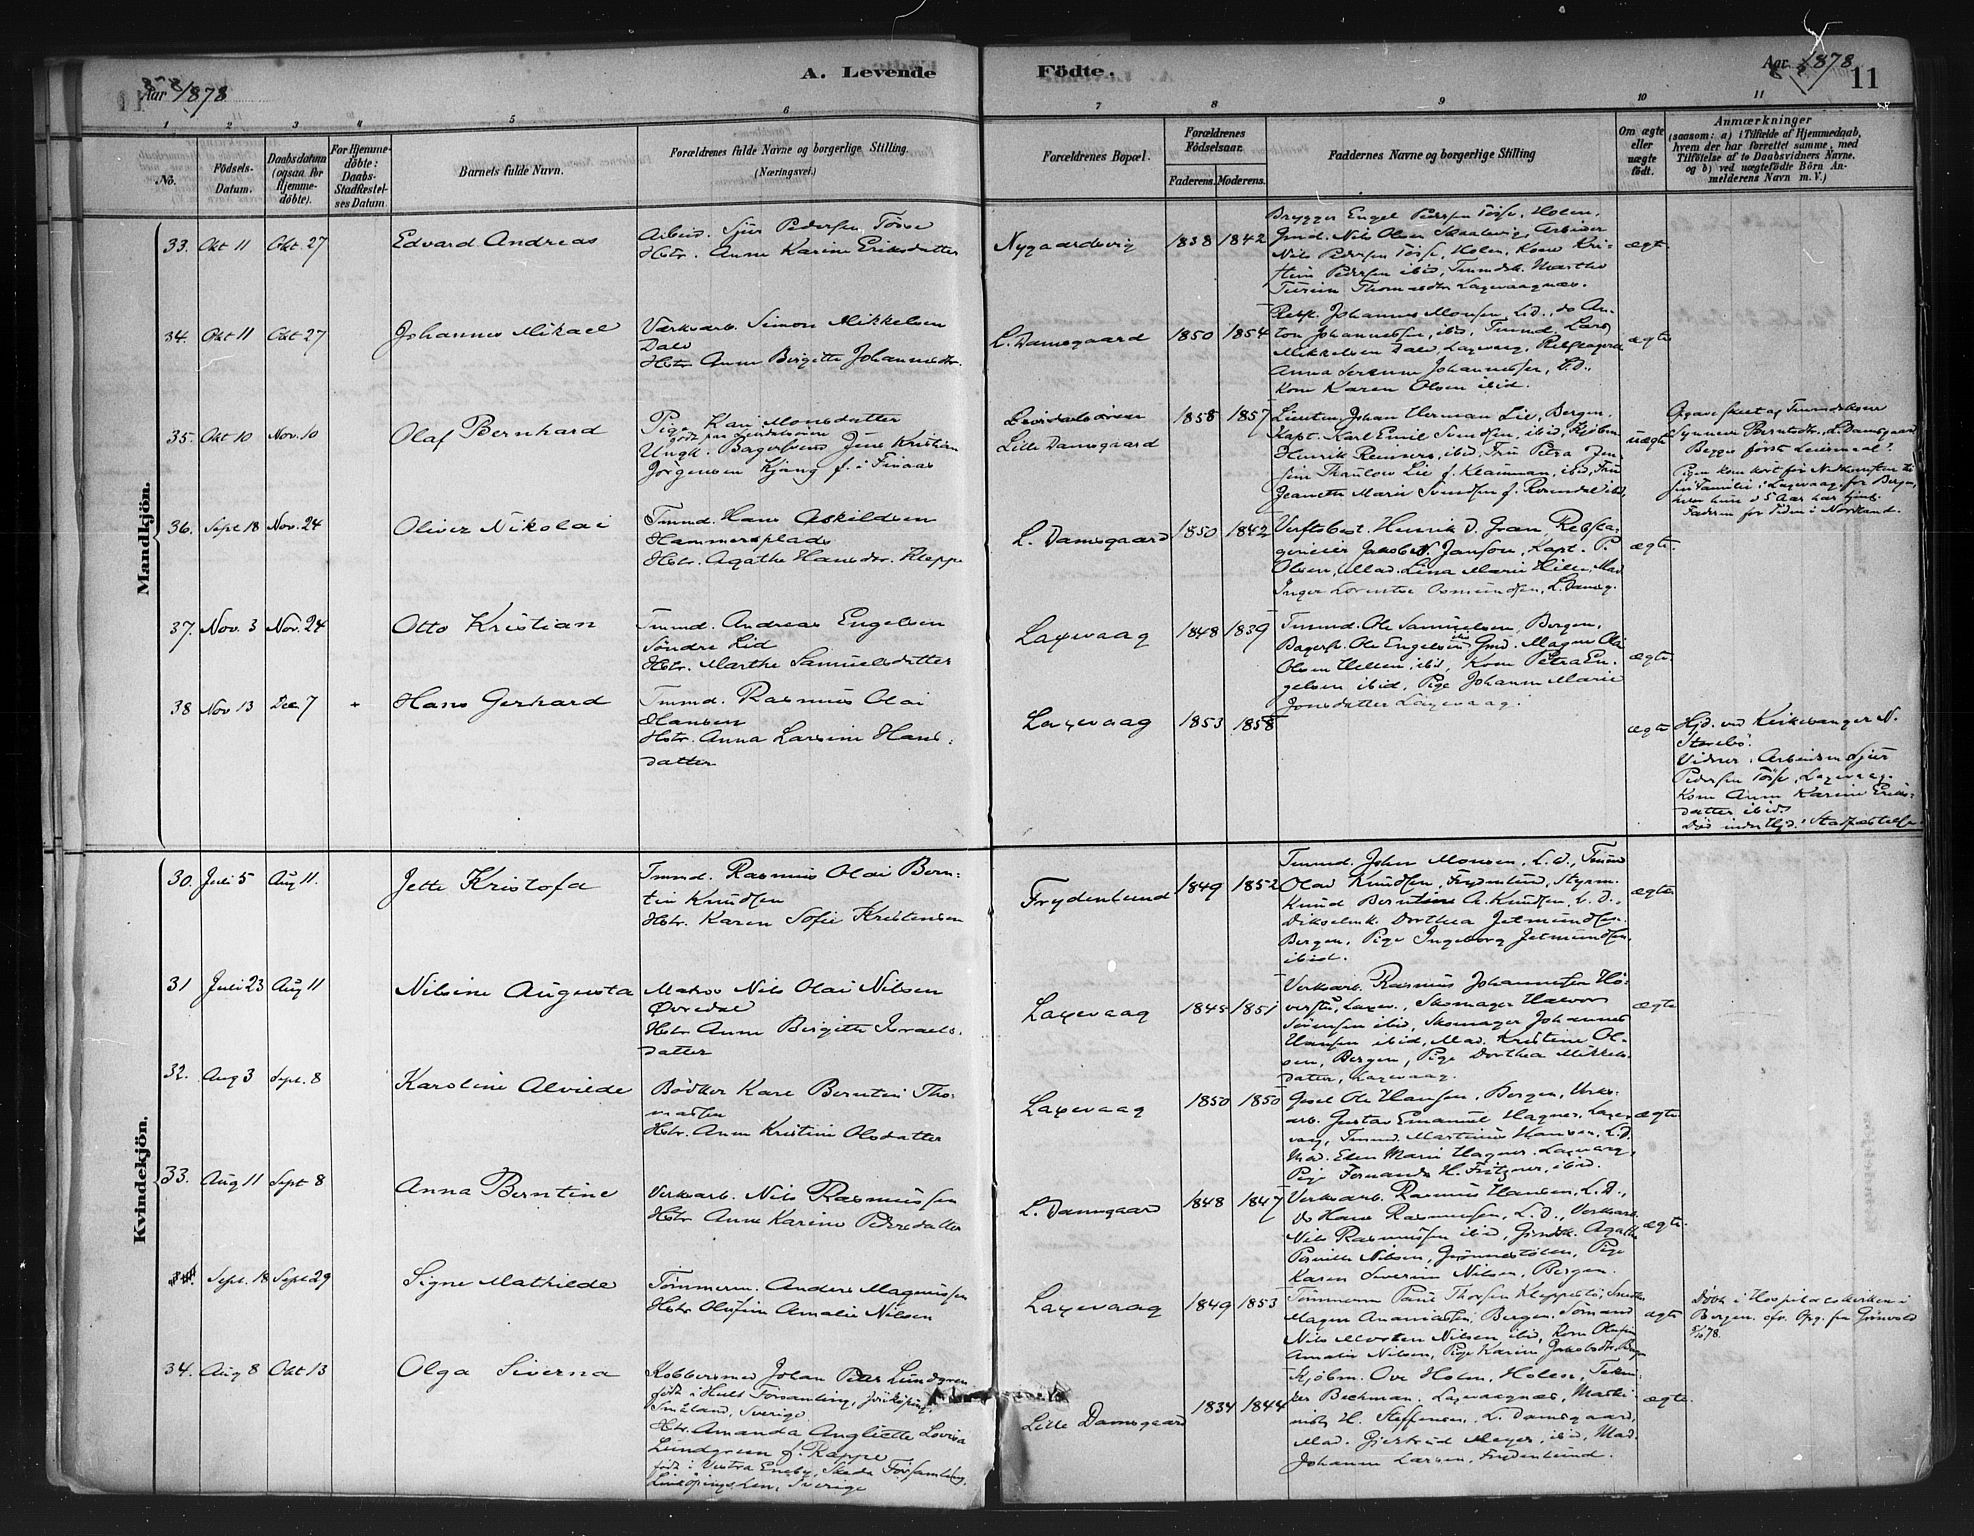 Aar 1878
A. Levende
Födte.
Aar 1878
11
1 2 3 4 5 6 7 8 9 10 11
No.
Födsels-Datum.
Daabsdatum (ogsaa for Hjemme-döbte).
For Hjemme-döbte: Daabs-Stadfæstel-ses Datum
Barnets fulde Navn.
Forældrenes fulde Navne og borgerlige Stilling. (Næringsvei.)
Forældrenes Bopæl.
Forældrenes Födselsaar.
Faderens. Moderens.
Faddernes Navne og borgerlige Stilling
Om ægte eller uægte födt.
Anmærkninger
(saasom: a) i Tilfælde af Hjemmedaab,
hvem der har forrettet samme, med
Tilföielse af to Daabsvidners Navne.
og b) ved uægtefödte Börn An-
melderens Navn m. V.)
Mandkjön.
33. Okt 11 Okt. 27 Edvard Andreas
Arbeid. Sjur Pedersen Tösse
Hstr. Anna Karine Eriksdatter
Nygaardsvig 1838 1842
Brygger Engel Pedersen Tösse, Holen,
Gmd. Nils Olsen Arbeider
Nils Pedersen Tösse, Holen, Kone Kri-
stine Pedersen ibid, Tmmdsk. Marthe
Thomasdtr Laxevaagnæs.
ægt
34. Okt 11 Okt 27 Johannes Mikael
Værksarb. Simon Mikkelsen
Dale
Hstr Anne Birgitte Johannesdtr.
L. Damsgaard 1850 1854
Johannes Monsen L.D., do An-
ton Johannessen, ibid, Tmmd. Lars
Mikkelsen Dale, Laxevaag,
Anna Serine Johannessen, L.D.,
Kone Karen Olsen ibid.
ægte
35. Okt 10 Nov. 10 Olaf Bernhard
Pige Kari Monsdatter
Ungk. Jens Kristian
Jörgensen Kjang f. i Finaas
Lille Damsgaard 1858 1857
Johan Herman Lie, Bergen,
Kapt. Karl Emil Svendsen, ibid, Kjöbm.
Henrik Reimers, ibid, Fru Petra Jen-
sine Thaulow Lie f. Klauman, ibid, Fru
Jeanette Marie Svendsen f. Rosendal ibid,
uægte
Opgave skeet af Tmmdskone
Synneve Berntsdtr, L. Damsgaard
Begges første Leiermaal?
Pigen kom kort før Nedkomsten til
sin Familie i Laxevaag fra Bergen,
hvor hun i 5 Aar har tjent.
Faderen for Tiden i Nordland.
36. Sept 18 Nov. 24 Oliver Nikolai
Tmmd. Hans Askildsen
Hammersplads
Hstr. Agathe Hansdtr. Kleppe
L. Damsgaard 1850 1842
Verftsbest. Henrik D. Gran
Janson, Kapt. P.
Olsen, Mad. Lina Marie Hille, Mad
Inger Lorentse Osmundsen, L. Damsg.
ægte.
37. Nov. 3 Nov. 24 Otto Kristian
Tmmd. Andreas Engelsen
Söndre Lid
Hstr. Marthe Samuelsdatter
Laxevaag 1848 1839
Tmmd. Ole Samuelsen, Bergen,
Ole Engelsen ibid Gmd. Magne Oli
Olsen ibid, Kone Petra En-
gelsen ibid, Pige Johanne Marie
Jonsdatter Laxevaag.
ægte
38 Nov 13 Dec 7 Hans Gerhard
Tmmd. Rasmus Olai
Hansen
Hstr. Anna Larsine Hans-
datter
Laxevaag 1853 1858
ægte
Hjd. ved Kirkesanger N.
Storebö.
Vidner: Arbeidsm Sjur
Pedersen Tösse, Laxevaag.
Kone Anna Karine Eriks-
datter ibid.
Död inden Stadfæstelse
Kvindekjön.
30. Juli 5 Aug 11. Jette Kristofa
Tmmd. Rasmus Olai Bern-
tin Knudsen
Hstr. Karen Sofie Kristensen
Frydenlund 1849 1852
Tmmd. John Monsen, L.D., Tmmd
Olai Knudsen, Frydenlund, Styrm.
Knud Berntine A. Knudsen, L.D.,
Dorthea Jetmundsen
Bergen, Pige Ingeborg Jetmundsen,
ibid.
ægte
31 Juli 23 Aug 11 Nilsine Augusta
Matros Nils Olai Nilsen
Övredal
Hstr Anne Birgitte Israels-
datter
Laxevaag 1845 1851
Verksarb. Rasmus Johannesen Hö-
Laxev., Skomager Halvor
Sörensen ibid, Skomager Johannes
Hansen ibid, Mad. Kristine Ol-
sen, Bergen, Pige Dorthea Mikkels-
datter, Laxevaag.
ægte
32. Aug 3 Sept. 8 Karoline Alvilde
Bödker Karl Berntin Tho-
massen
Hstr. Anne Kristine Olsdatter
Laxevaag 1850 1850
Ole Hansen, Bergen, Verks-
arb. Gustav Emanuel Hagner, Laxe-
vag, Tmmd. Martinus Hansen, L.D.
Mad. Elen Marie Hagner, Laxevaag,
Pige Fernanda H. Fritzner, ibid.
ægte
33. Aug 11 Sept 8 Anna Berntine
Verksarb. Nils Rasmussen
Hstr Anne Karine Pedersdatter
L. Damsgaard 1848 1847
Verksarb. Rasmus Hansen, L.D.,
Do Hans Rasmussen, L.D., Verksarb
Nils Rasmussen ibid, Agathe
Pernille Nilsen, Grönnestölen, Pige
Karen Severine Nilsen, Bergen.
ægte.
Sept. 18 Sept 29 Signe Mathilde
Tömmerm. Anders Magnussen
Hstr Olufine Amalie Nilsen
Laxevaag 1849 1853
Tömmerm Paul Thorsen Kleppestö,
Magne Ananiassen, Bergen, Sömand
Nils Morten Nilsen, ibid, Kone Olufine
Amalie Nilsen, Pige Karine Bergen
ægte
Döbt i Hospitalskirken i
Bergen. cfr. Opg. fra Grönvold
34. Aug 8 Okt 13 Olga Siverna
Kobbersmed Johan Peter Lundgren
född i Hults Församling, Jönköping,
Småland, Sverige
Hstr. Amanda Angliette Lovisa
Lundgren f. Rappe
född i Vestra Eneby, Skeda Församling,
Linköpings Len, Sverige
Lille Damsgaard 1834 1844
Kjöbm. Ove Holm, Holen,
Beckman, Laxevaagnæs, Maski-
nist H. Steffensen, L. Damsgaard,
Mad. Gjertrud Meyer, ibid, Mad.
Johanne Larsen, Frydenlund.
ægte.